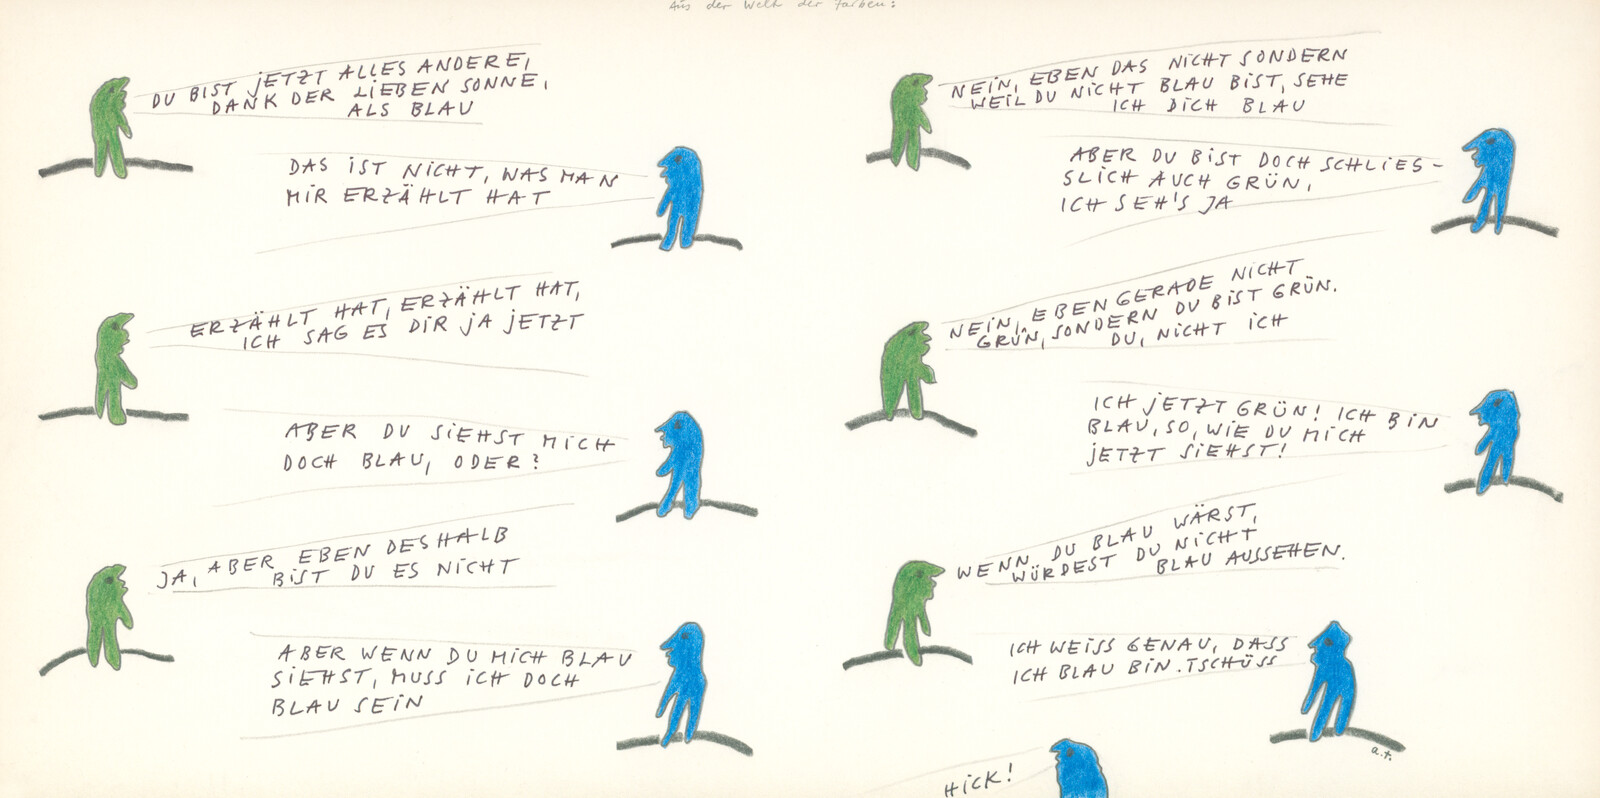 Aus der Welt der Farben:
DU BIST JETZT ALLES ANDERE,
DANK DER LIEBEN SONNE,
ALS BLAU
DAS IST NICHT, WAS MAN
MIR ERZÄHLT HAT
ERZÄHLT HAT, ERZÄHLT HAT,
ICH SAG ES DIR JA JETZT
ABER DU SIEHST MICH
DOCH BLAU, ODER?
JA, ABER EBEN DESHALB
BIST DU ES NICHT
ABER WENN DU MICH BLAU
SIEHST, MUSS ICH DOCH
BLAU SEIN
NEIN, EBEN DAS NICHT SONDERN
WEIL DU NICHT BLAU BIST, SEHE
ICH DICH BLAU
ABER DU BIST DOCH SCHLIES-
SLICH AUCH GRÜN,
ICH SEH'S JA
NEIN, EBEN GERADE NICHT
GRÜN, SONDERN DU BIST GRÜN.
DU, NICHT ICH
ICH JETZT GRÜN! ICH BIN
BLAU, SO, WIE DU MICH
JETZT SIEHST!
WENN DU BLAU WÄRST,
WÜRDEST DU NICHT
BLAU AUSSEHEN.
ICH WEISS GENAU, DASS
ICH BLAU BIN. TSCHÜSS
a.t.
HICK!